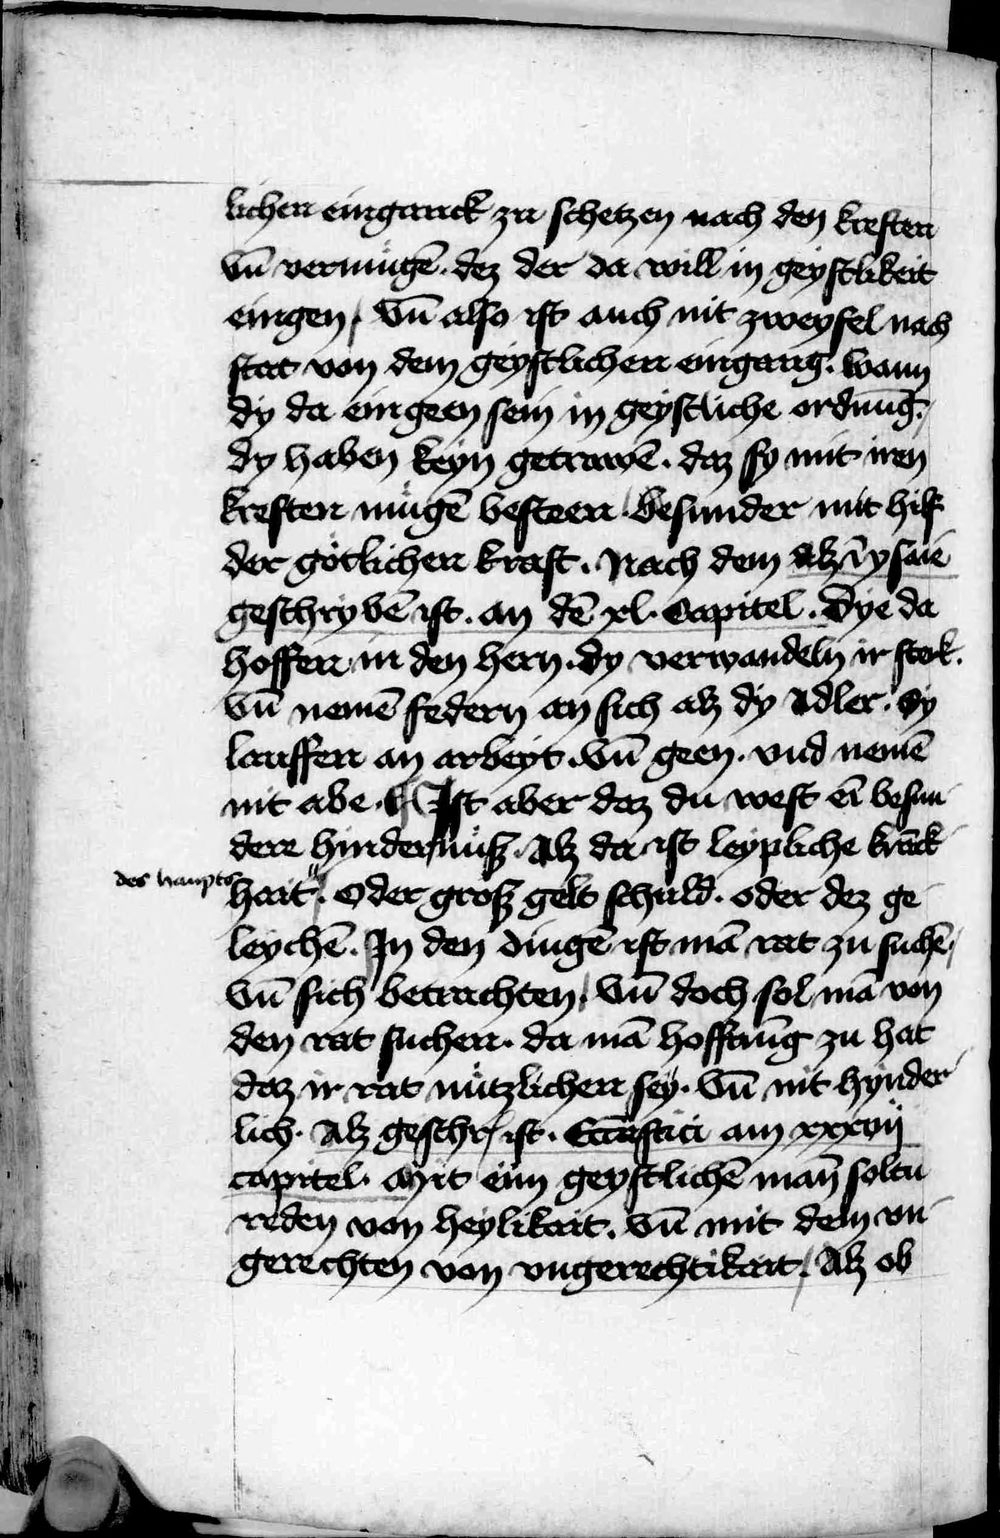 lichen eingank zu schetzen nach den kreften
vn̄ vermügē. dez der da will in geystlikeit
eingen / Vn̄ also ist auch nit zweyfel nach
stat von dem geystlichen eingang. Wann
dy da eingeen sein in geystliche ordnūg.
dy haben keyn getrawē. daz sy mit iren
kreften mügē besteen / Besunder mit hilf
der götlichen kraft. Nach dem Alz ysaie
geschrybē ist. an dē xl. Capitel. Dye da
hoffen in den hern. dy verwandeln ir sterk.
Vn̄ nemē federn an sich alz dy Adler. Sy
lauffen an arbeyt. Vn̄ geen. vnd nemē
nit abe. Ist aber daz du west eī besun
dere hindernüß. Alz da ist leypliche krāck
des haupts
hait. Oder groß gelt schuld. oder dez ge
leychē. In den dingē ist mā rat zu suchē
Vn̄ sich betrachten / Vn̄ doch sol mā von
den rat suchen. da mā hoffnūg zu hat
daz ir rat nützlichen sey. Vn̄ nit hynder
lich. Alz geschr ist. Eccīastici am xxxvij
capitel. Mit eim geystlichē man̄ soltu
reden von heylikait. Vn̄ mit dem vn
gerechten von vngerechtikait. Alz ob